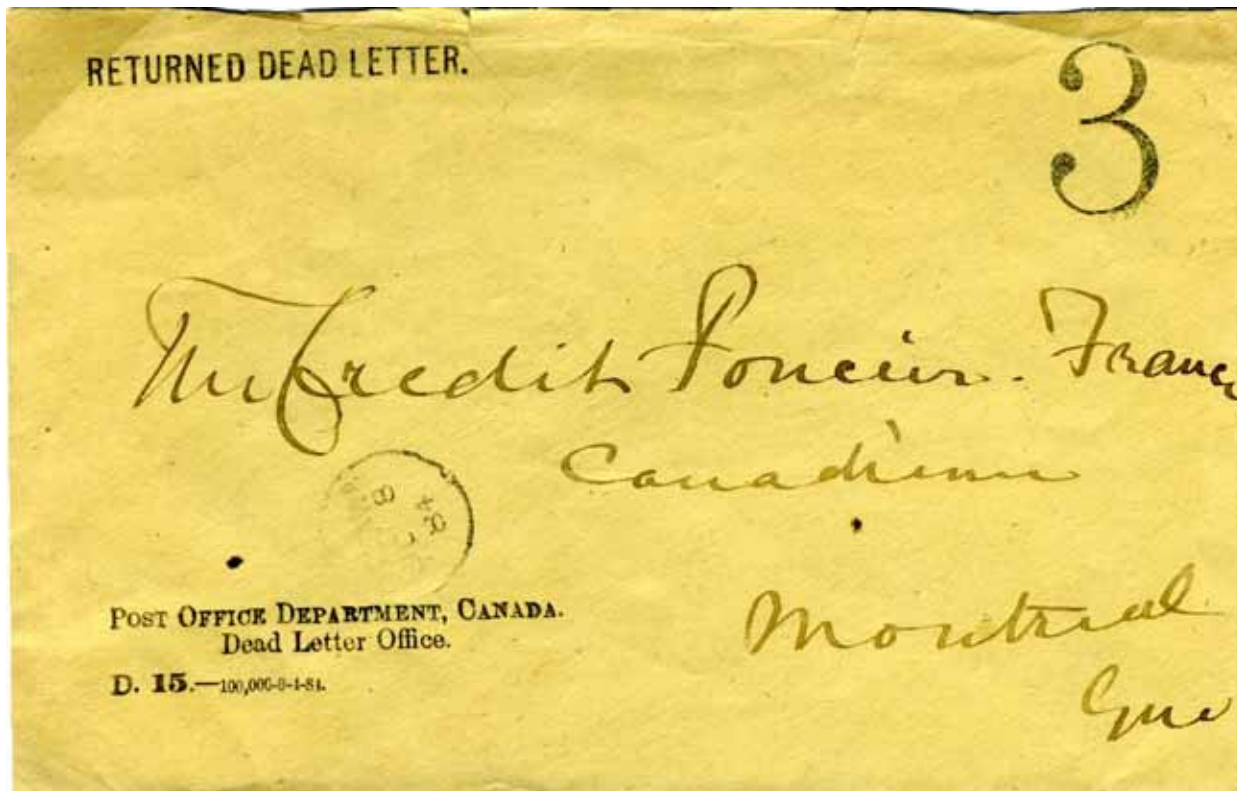 RETURNED DEAD LETTER.
3
The Credit Foncier. Franc
Canadienne
84
Montreal
Que
POST OFFICE DEPARTMENT, CANADA.
Dead Letter Office.
D. 15.—100,000-9-4-84.